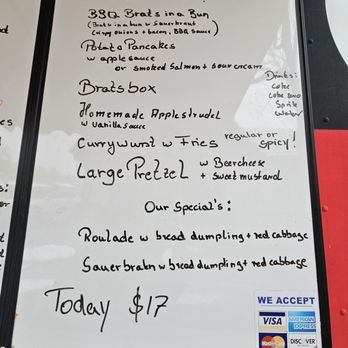 BBQ Brats in a Bun
(Brats in a bun w Sauerkraut
crispy onions + bacon, BBQ sauce)
Potato Pancakes
w apple sauce
or smoked Salmon + sour cream
Drinks:
Coke
Coke zero
Sprite
Water
Bratsbox
Homemade Applestrudel
w Vanilla sauce
Currywurst w Fries regular or spicy!
Large Pretzel w Beercheese
+ sweet mustard
Our Special's:
Roulade w bread dumpling + red cabbage
Sauerbraten w bread dumpling + red cabbage
Today $17
WE ACCEPT
VISA
AMERICAN EXPRESS
MasterCard
DISCOVER